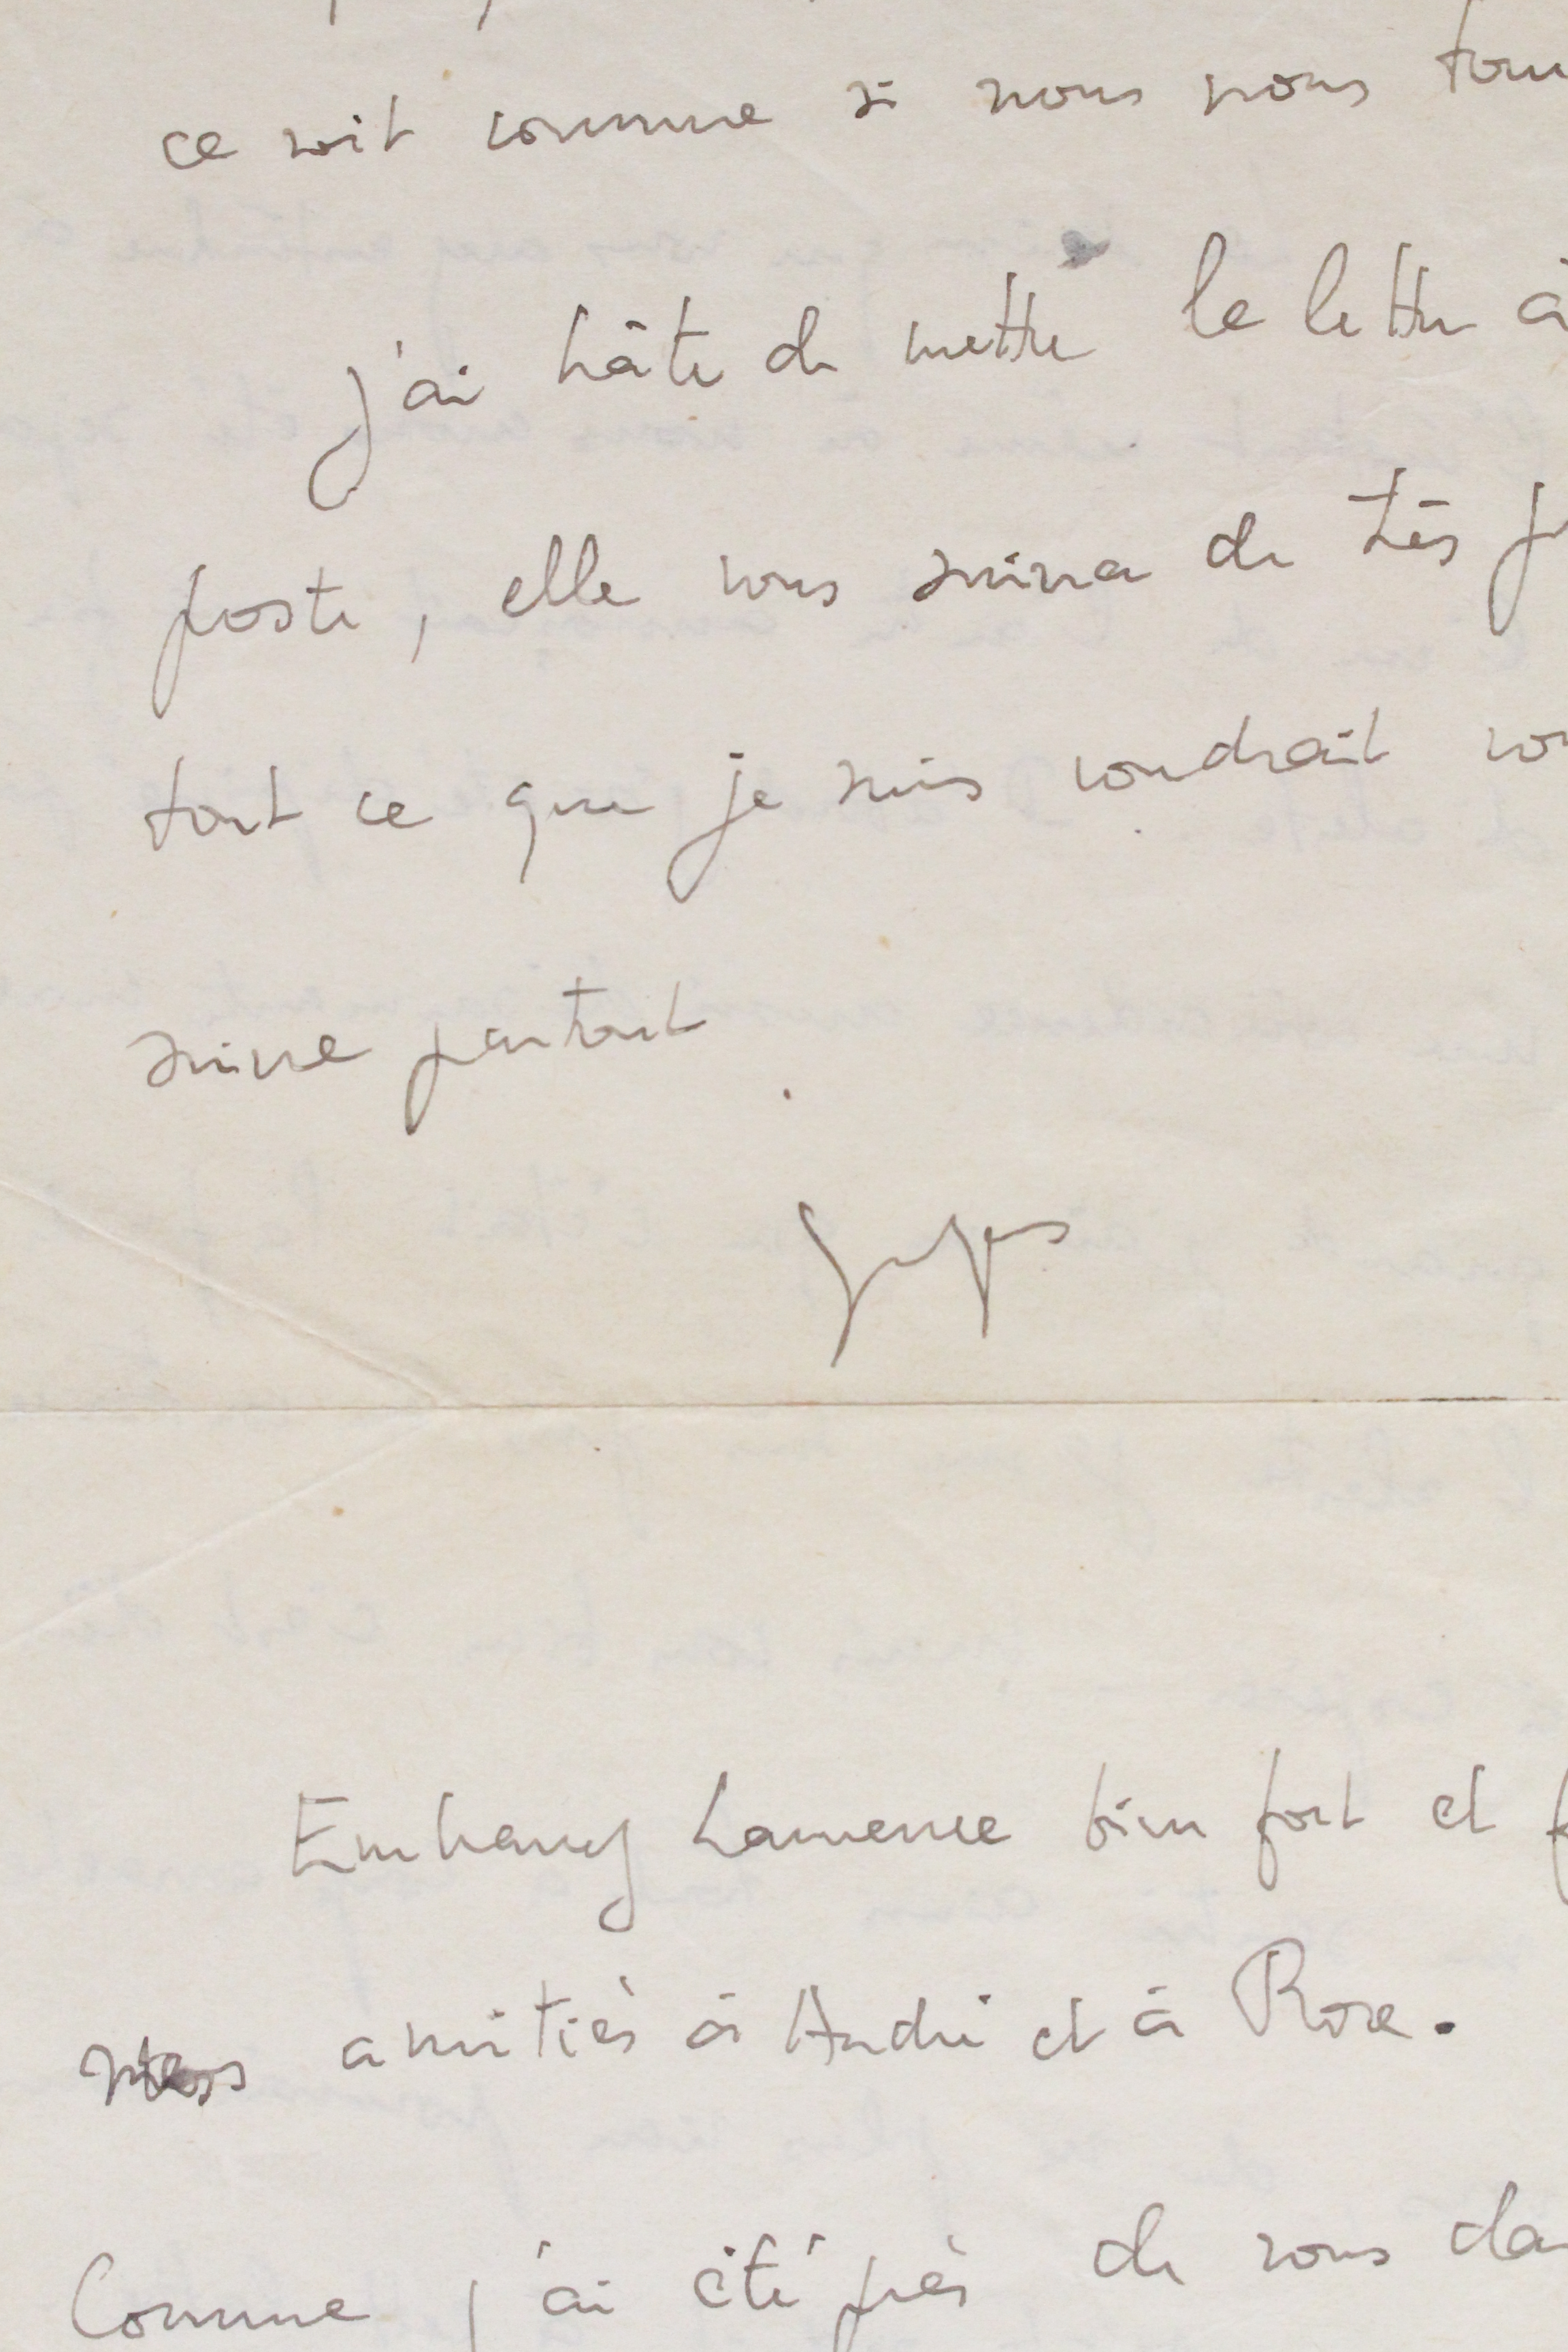 ce soit comme si nous nous tou
j'ai hâte de mettre la lettre à
poste, elle vous suivra de très p
tout ce que je suis voudrait vou
suivre partout.
Embrassez Laurence bien fort et f
mes amitiés à André et à Rose.
Comme j'ai été près de vous da